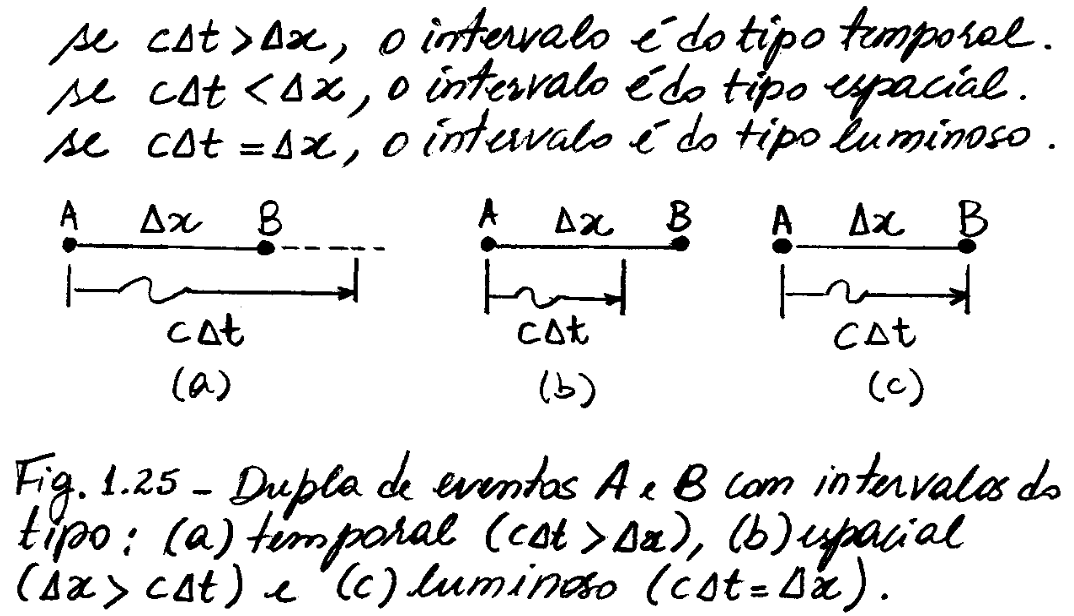 se cΔt > Δx, o intervalo é do tipo temporal.
se cΔt < Δx, o intervalo é do tipo espacial.
se cΔt = Δx, o intervalo é do tipo luminoso.
A Δx B
cΔt
(a)
A Δx B
cΔt
(b)
A Δx B
cΔt
(c)
Fig. 1.25 - Dupla de eventos A e B com intervalos do
tipo: (a) temporal (cΔt > Δx), (b) espacial
(Δx > cΔt) e (c) luminoso (cΔt = Δx).